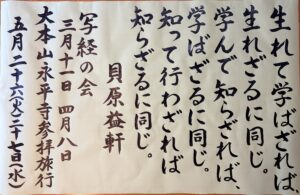 生れて学ばざれば
生れざるに同じ。
学んで知らざれば、
学ばざるに同じ。
知って行わざれば
知らざるに同じ。
貝原益軒
写経の会
三月十一日 四月八日
大本山永平寺参拝旅行
五月二十六(火)二十七日(水)